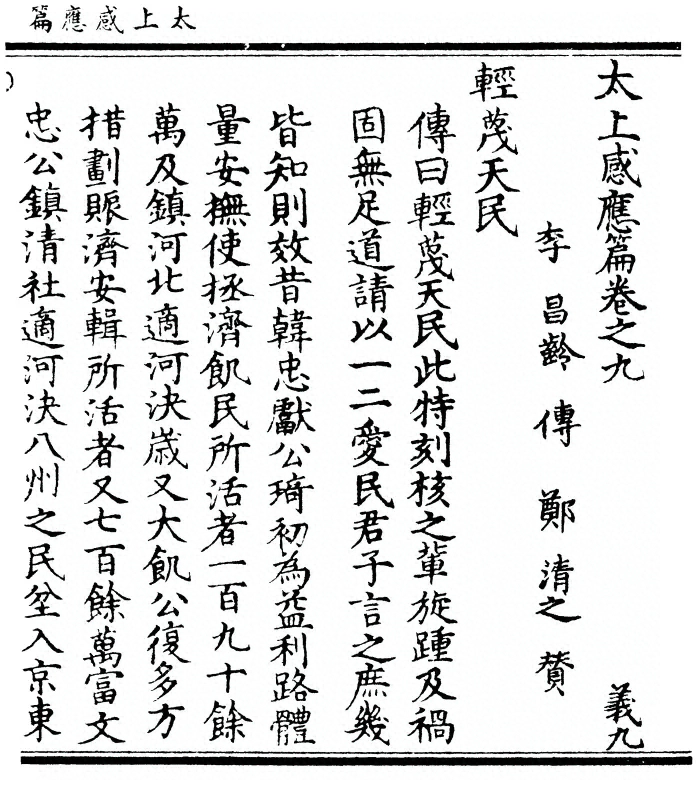 太上感應篇
太上感應篇卷之九 義九
李昌齡傳 鄭清之贊
輕蔑天民
傳曰輕蔑天民此特刻核之輩旋踵及禍
固無足道請以一二愛民君子言之庶幾
皆知則效昔韓忠獻公琦初為益利路體
量安撫使拯濟飢民所活者一百九十餘
萬及鎮河北適河決歲又大飢公復多方
措劃賑濟安輯所活者又七百餘萬富文
忠公鎮清社適河決八州之民坌入京東